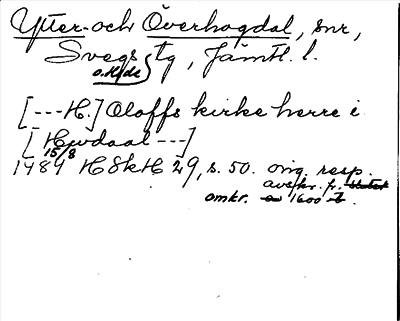 Ytter- och Överhogdal, snr,
Svegs tg, Jämtl. l.
o. Hede
[---H.] Oloffs kirke herre i
[Hwdaal ---]
15/8
1489 HSkH 29, s. 50. orig. resp.
avskr. fr.
omkr. 1600